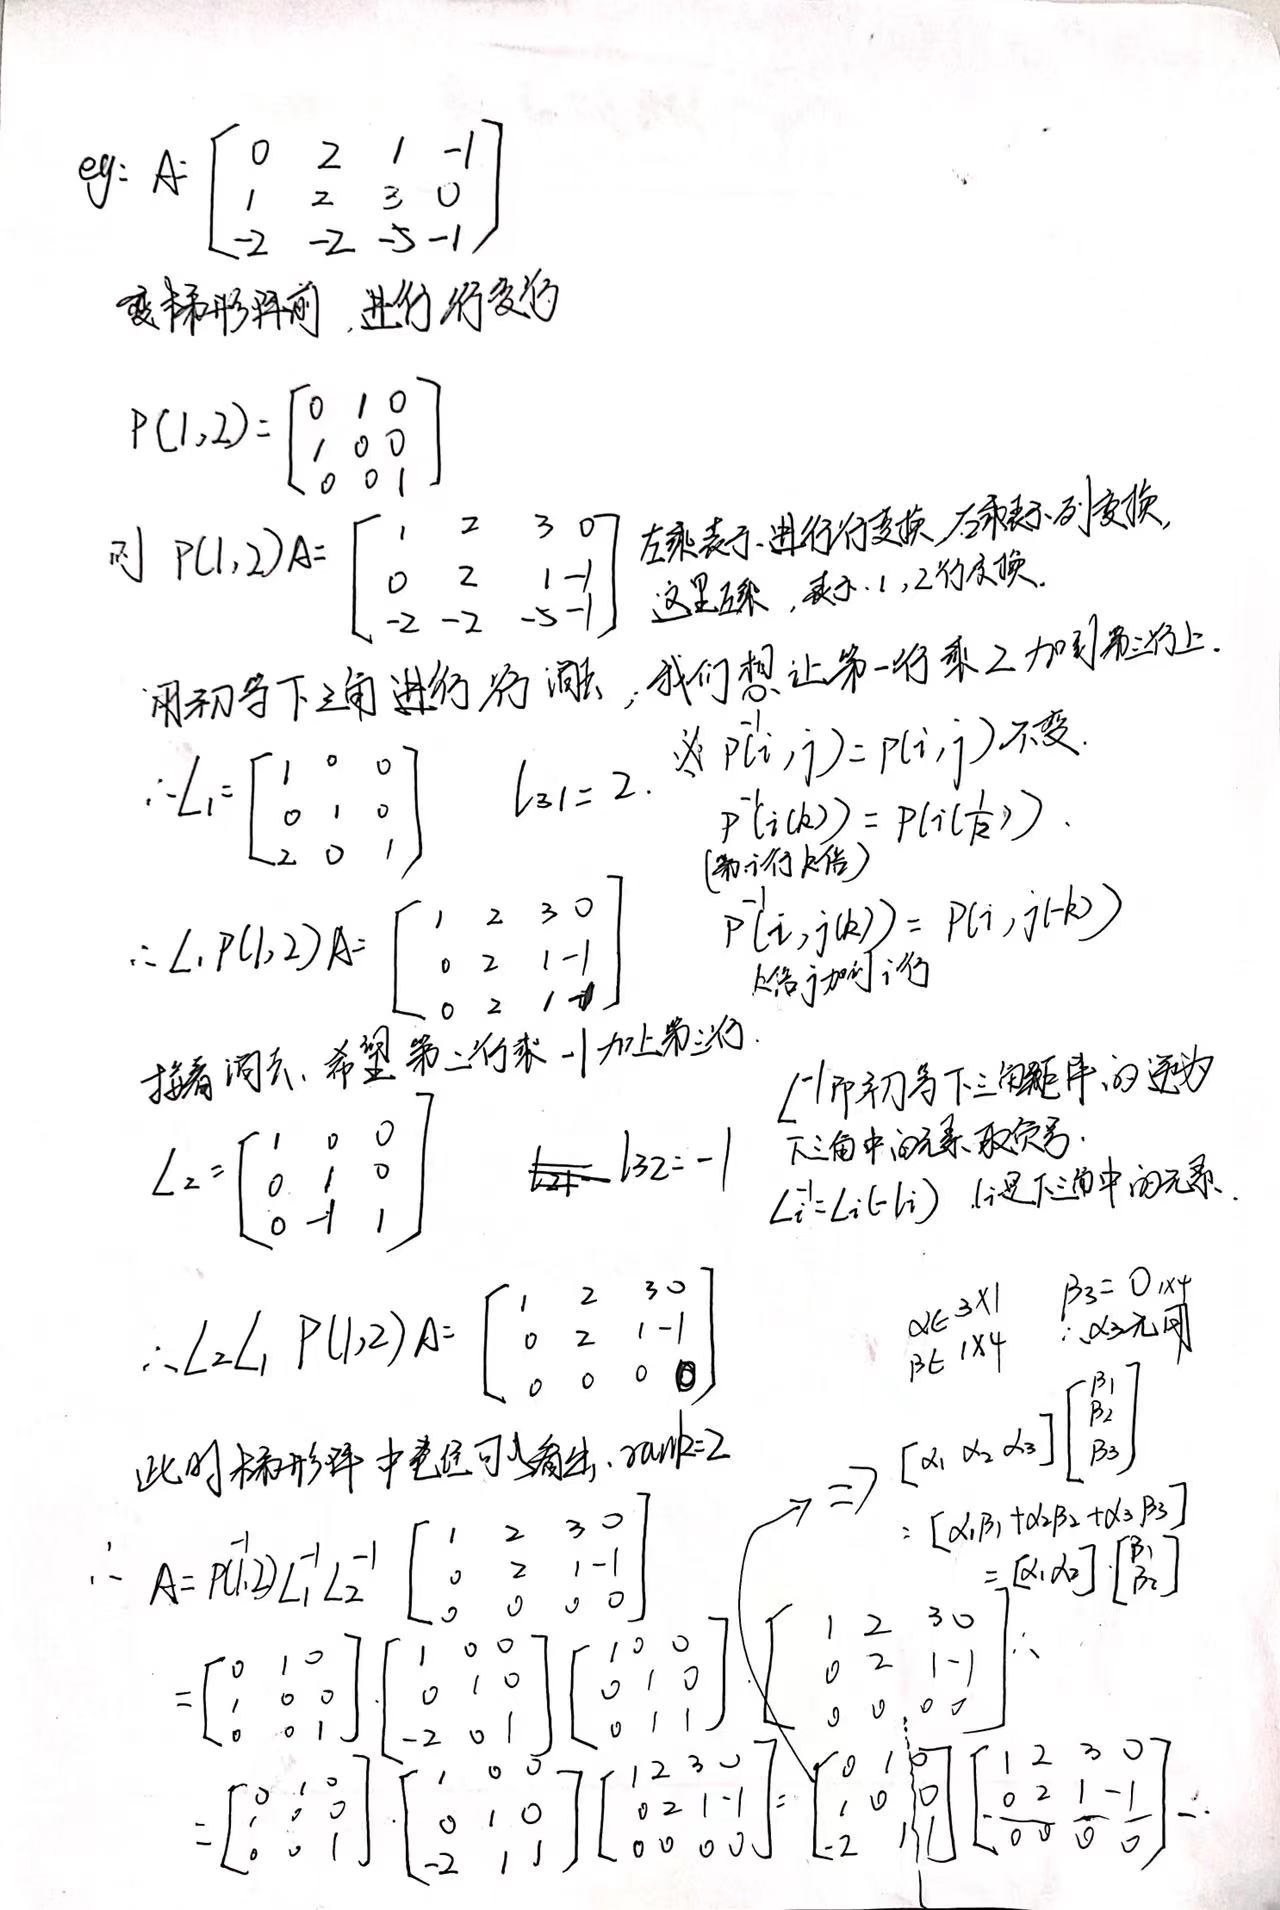 eg: A= [0 2 1 -1
1 2 3 0
-2 -2 -5 -1]
变梯形阵前,进行行变行
P(1,2)= [0 1 0
1 0 0
0 0 1]
则 P(1,2)A= [1 2 3 0
0 2 1 -1
-2 -2 -5 -1]
左乘表示进行行变换,右乘表示列变换,
这里左乘,表示1,2行变换.
用初等下三角进行行消去,我们想让第一行乘2加到第三行上.
∴L₁= [1 0 0
0 1 0
2 0 1]
l31=2.
P⁻¹(i,j)=P(i,j)不变.
P⁻¹(i(k))=P(i(1/k)).
(第i行k倍)
P⁻¹(i,j(k))=P(i,j(-k))
k倍j加到i行
∴L₁P(1,2)A= [1 2 3 0
0 2 1 -1
0 2 1 -1]
接着消去,希望第二行乘-1加上第三行.
L₂= [1 0 0
0 1 0
0 -1 1]
l32=-1
L⁻¹即初等下三角矩阵的逆为
下三角中的元素取负号.
Lᵢ⁻¹=Lᵢ(-lᵢ) lᵢ是下三角中的元素.
∴L₂L₁P(1,2)A= [1 2 3 0
0 2 1 -1
0 0 0 0]
α∈3×1
β∈1×4
β₃=0 1×4
∴α₃无用
此时梯形阵中可以看出,rank=2
⇒ [α₁ α₂ α₃] [β₁
β₂
β₃]
=[α₁β₁+α₂β₂+α₃β₃]
=[α₁α₂]·[β₁
β₂]
∴ A=P⁻¹(1,2)L₁⁻¹L₂⁻¹ [1 2 3 0
0 2 1 -1
0 0 0 0]
= [0 1 0
1 0 0
0 0 1] · [1 0 0
0 1 0
-2 0 1] [1 0 0
0 1 0
0 1 1] · [1 2 3 0
0 2 1 -1
0 0 0 0] ∴
= [0 1 0
1 0 0
0 0 1] · [1 0 0
0 1 0
-2 1 1] [1 2 3 0
0 2 1 -1
0 0 0 0] = [0 1 0
1 0 0
-2 1 1] [1 2 3 0
0 2 1 -1
0 0 0 0]